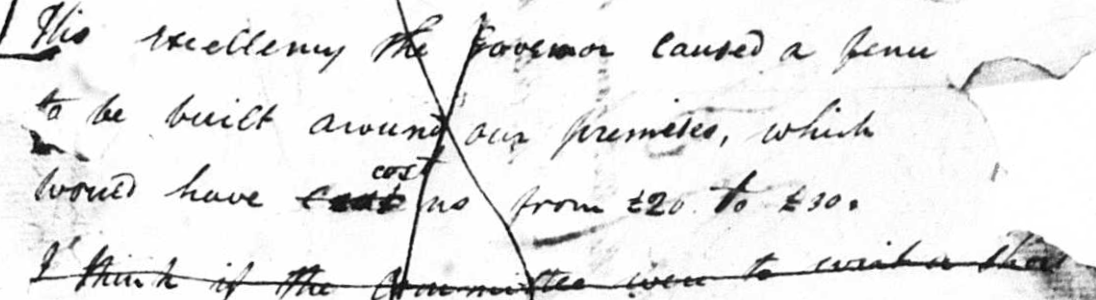 His excellency the Governor caused a fence
to be built around our premises, which
would have cost us from £20 to £30.
I think if the Committee were to